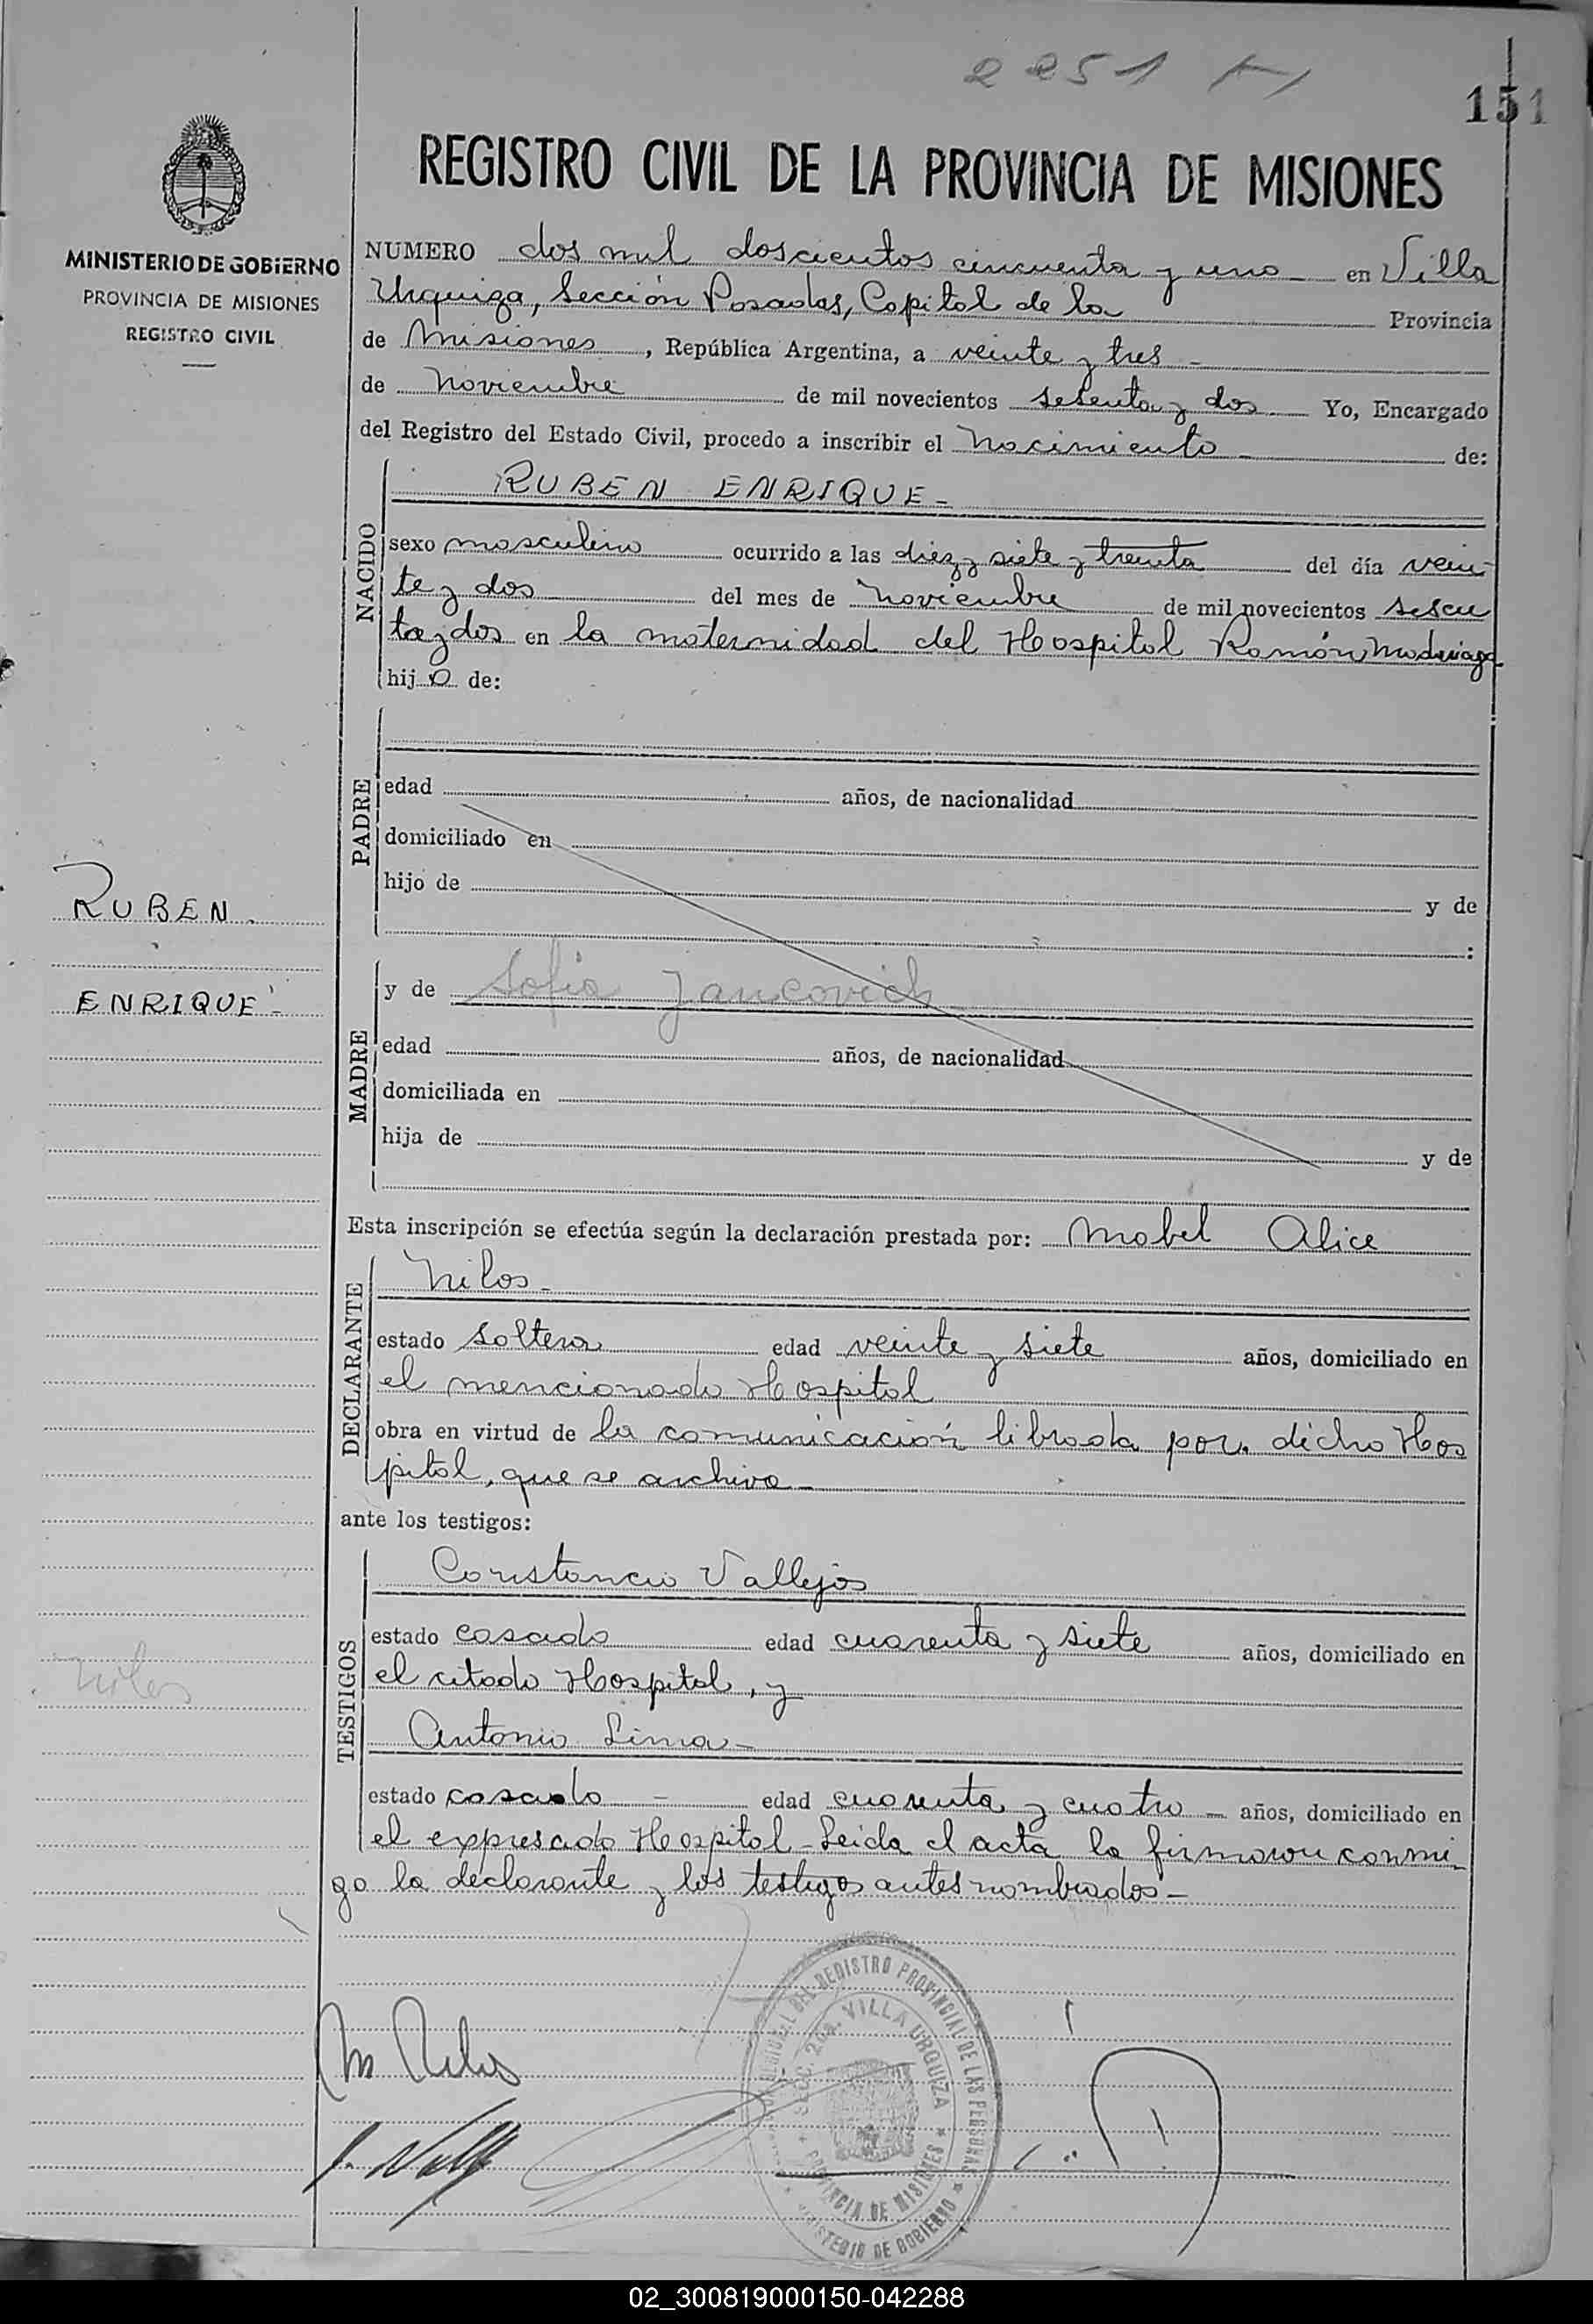 2251
151
REGISTRO CIVIL DE LA PROVINCIA DE MISIONES
MINISTERIO DE GOBIERNO
PROVINCIA DE MISIONES
REGISTRO CIVIL
NUMERO dos mil doscientos cincuenta y uno en Villa
Urquiza, Sección Posadas, Capital de la Provincia
de Misiones, República Argentina, a veinte y tres -
de Noviembre de mil novecientos sesenta y dos. Yo, Encargado
del Registro del Estado Civil, procedo a inscribir el Nacimiento - de:
NACIDO
RUBEN ENRIQUE -
sexo masculino ocurrido a las diez y siete y treinta del día vein
te y dos del mes de Noviembre de mil novecientos sesen
ta y dos en la maternidad del Hospital Ramón Madariaga
hijo de:
PADRE
edad años, de nacionalidad
domiciliado en
hijo de y de
:
RUBEN.
ENRIQUE -
MADRE
y de Sofia Jancovich
edad años, de nacionalidad
domiciliada en
hija de y de
Esta inscripción se efectúa según la declaración prestada por: Mabel Alice
DECLARANTE
Nilos -
estado soltera edad veinte y siete años, domiciliado en
el mencionado Hospital
obra en virtud de la comunicación librada por dicho Hos
pital, que se archiva -
ante los testigos:
TESTIGOS
Constancio Vallejos
estado casado edad cuarenta y siete años, domiciliado en
el citado Hospital, y
Nilos
Antonio Lima -
estado casado - edad cuarenta y cuatro - años, domiciliado en
el expresado Hospital - Leida el acta la firmaron conmi
go la declarante y los testigos antes nombrados -
M Nilos
DEL REGISTRO PROVINCIAL DE LAS PERSONAS
SECC. 2da. VILLA URQUIZA
PROVINCIA DE MISIONES
MINISTERIO DE GOBIERNO
02_300819000150-042288